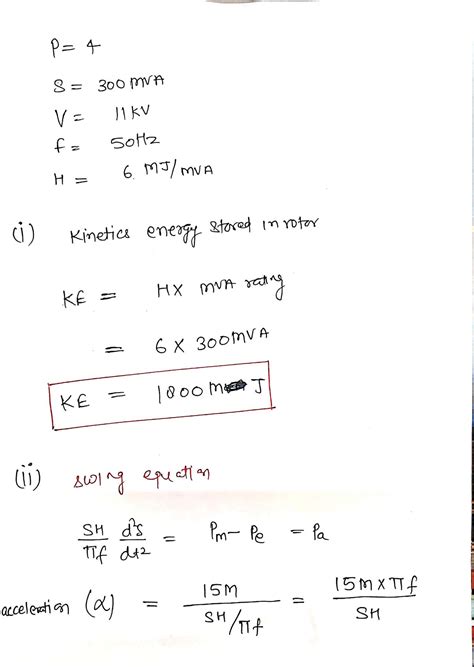 P = 4
S = 300 MVA
V = 11 KV
f = 50Hz
H = 6 MJ/MVA
(i) Kinetics energy stored in rotor
KE = H X MVA rating
= 6 X 300 MVA
KE = 1800 M J
(ii) swing equation
SH/πf d²δ/dt2 = Pm - Pe = Pa
acceleration (α) = 15M / SH/πf = 15M × πf / SH